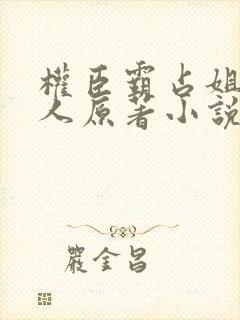 權臣霸占姐
人原著小說
嚴金昌